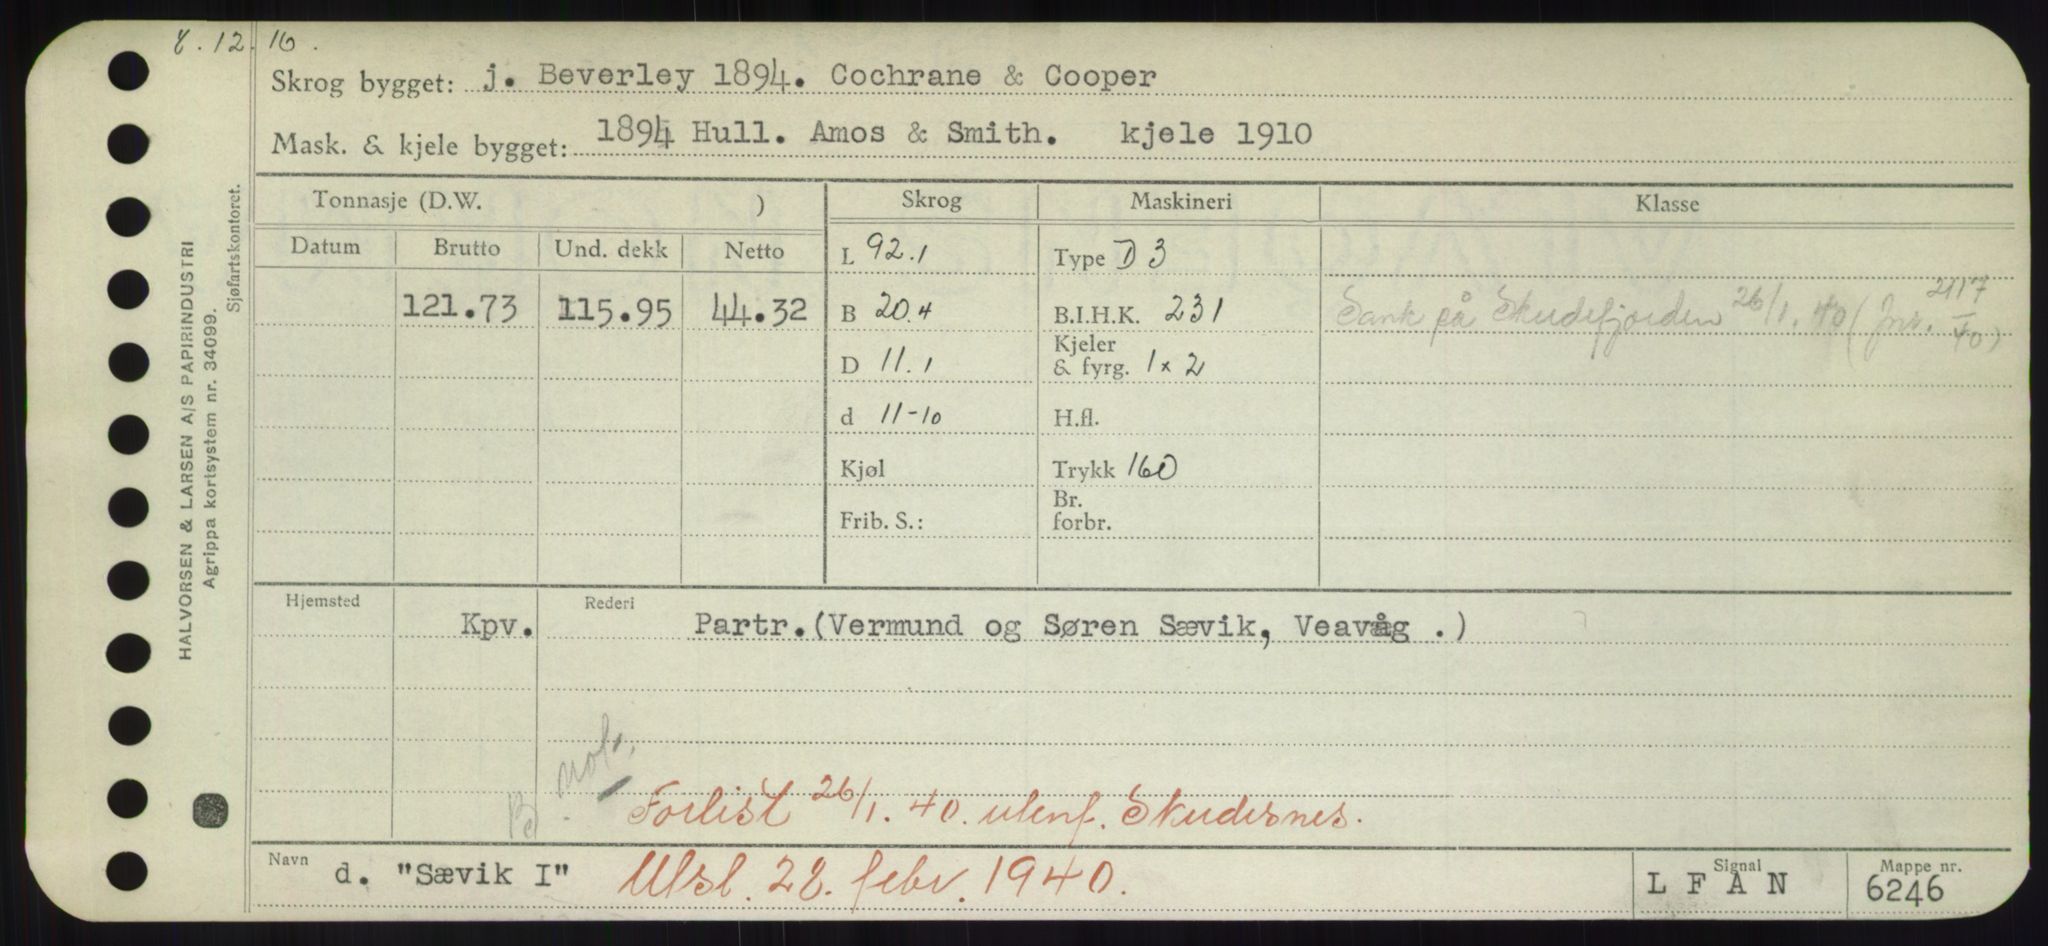 8.12.16.
Skrog bygget: j. Beverley 1894. Cochrane & Cooper
Mask. & kjele bygget: 1894 Hull. Amos & Smith. kjele 1910
Tonnasje (D.W. ) Skrog Maskineri Klasse
Datum Brutto Und. dekk Netto L 92.1 Type D 3
121.73 115.95 44.32 B 20.4 B.I.H.K. 231 Sank på Skudefjorden 26/1.40 (Jnr. 2117/40)
D 11.1 Kjeler & fyrg. 1 x 2
d 11-10 H.fl.
Kjøl Trykk 160
Frib. S.: Br. forbr.
Hjemsted Rederi
Kpv. Partr.(Vermund og Søren Sævik, Veavåg .)
not.
Forlist 26/1.40. utenf. Skudesnes.
Navn d. "Sævik I" Utsl. 28. febr. 1940. Signal L F A N Mappe nr. 6246
HALVORSEN & LARSEN A/S PAPIRINDUSTRI
Agrippa kortsystem nr. 34099.
Sjøfartskontoret.